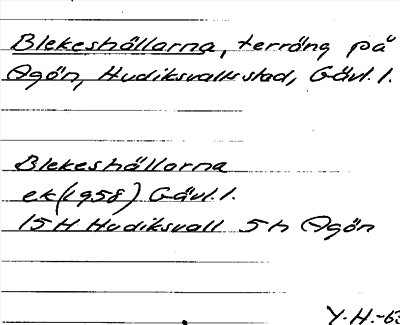 Blekeshällarna, terräng på
Agön, Hudiksvalls stad, Gävl. l.
Blekeshällarna
ek (1958) Gävl. l.
15H Hudiksvall 5h Agön
Y.H.-63